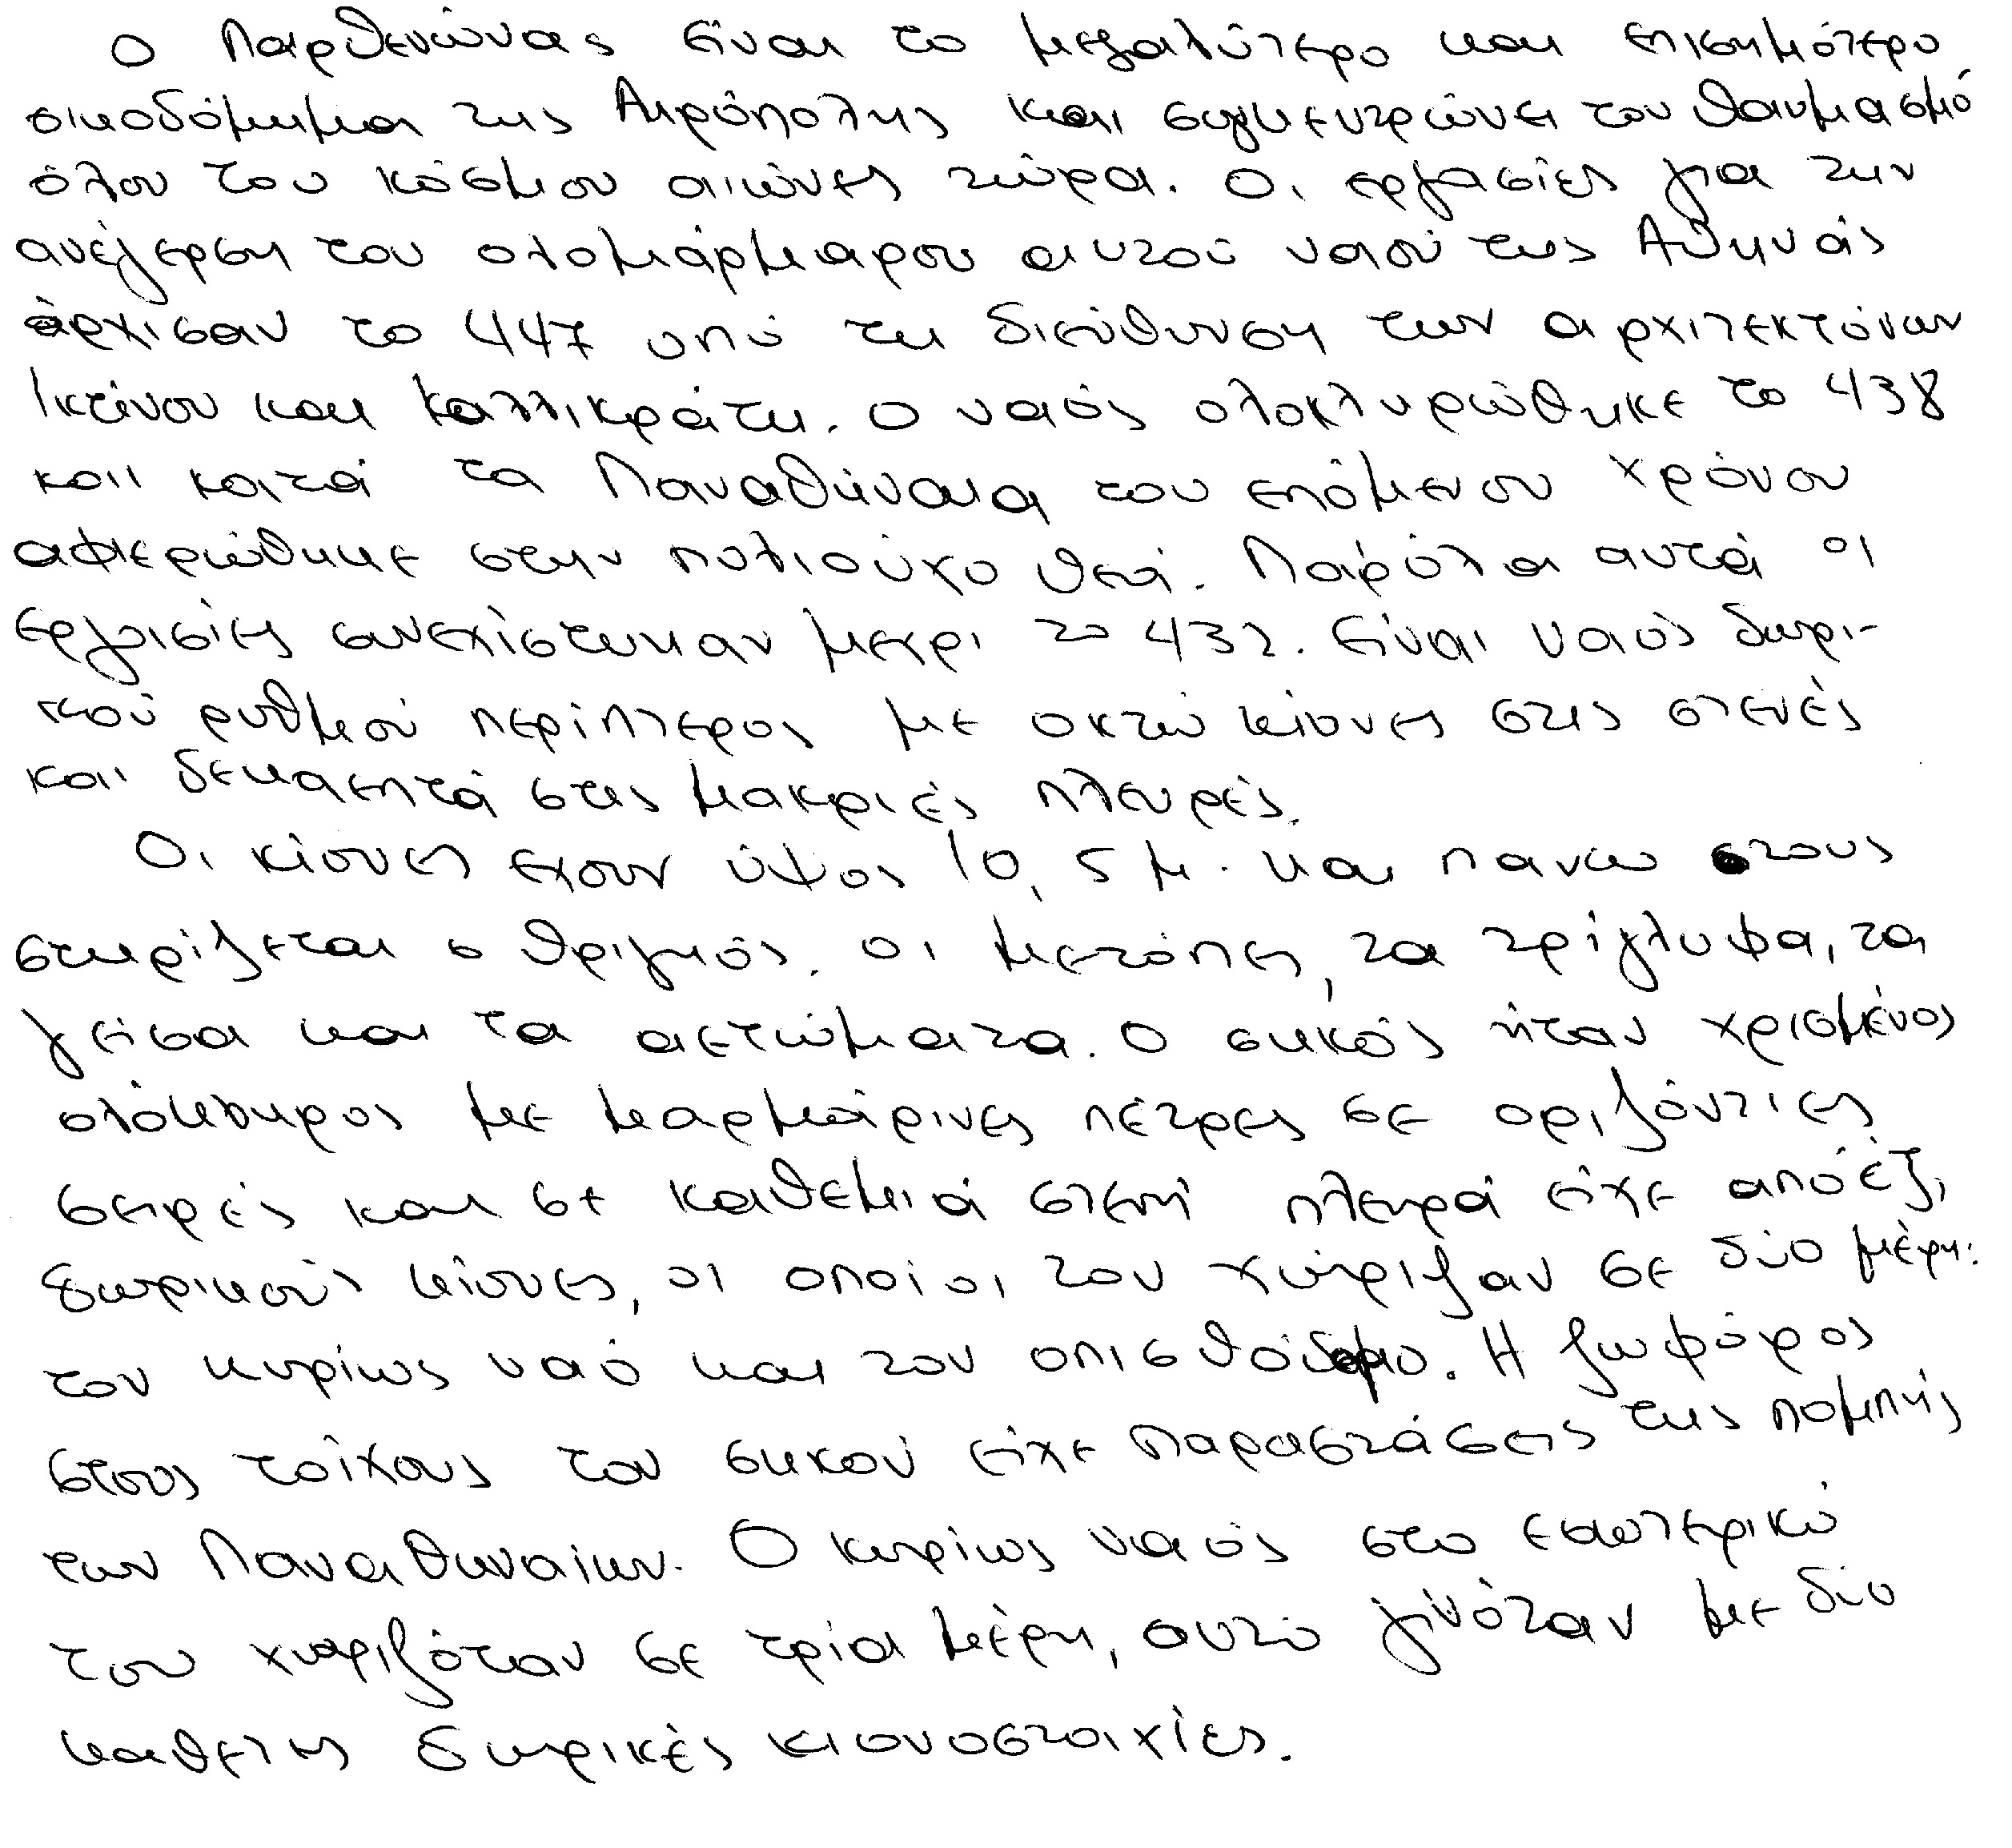 Ο Παρθενώνας είναι το μεγαλύτερο και επισημότερο
οικοδόμημα της Ακρόπολης και συγκεντρώνει τον θαυμασμό
όλου του κόσμου αιώνες τώρα. Οι εργασίες για την
ανέγερση του ολομάρμαρου αυτού ναού της Αθηνάς
άρχισαν το 447 υπό τη διεύθυνση των αρχιτεκτόνων
Ικτίνου και Καλλικράτη. Ο ναός ολοκληρώθηκε το 438
και κατά τα Παναθήναια του επόμενου χρόνου
αφιερώθηκε στην πολιούχο θεά. Παρόλα αυτά οι
εργασίες συνεχίστηκαν μεχρι το 432. Είναι ναός δωρι-
κού ρυθμού περίπτερος με οκτώ κίονες στις στενές
και δεκαεπτά στις μακριές πλευρές.
Οι κίονες εχουν ύψος 10,5 μ. και πανω στους
στηρίζεται ο θριγκός. οι μετόπες, τα τρίγλυφα, τα
γείσα και τα αετώματα. Ο σηκός ήταν χρισμένος
ολόκληρος με μαρμάρινες πέτρες σε οριζόντιες
σειρές και σε καθεμιά στενή πλευρά είχε από έξι
δωρικούς κίονες, οι οποίοι τον χώριζαν σε δύο μέρη:
τον κυρίως ναό και τον οπισθόδομο. Η ζωφόρος
στους τοίχους του σηκού είχε παραστάσεις της πομπής
των Παναθηναίων. Ο κυρίως ναός στο εσωτερικό
του χωριζόταν σε τρία μέρη, αυτό γινόταν με δύο
καθετες δωρικές κιονοστοιχίες.